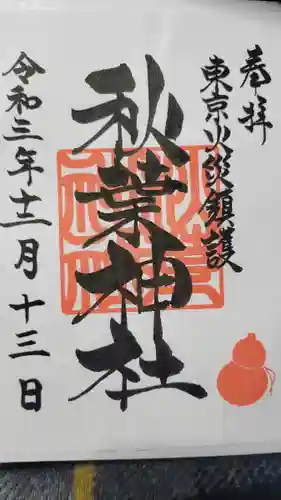 奉拝
東京火災鎮護
秋葉神社
令和三年十二月十三日